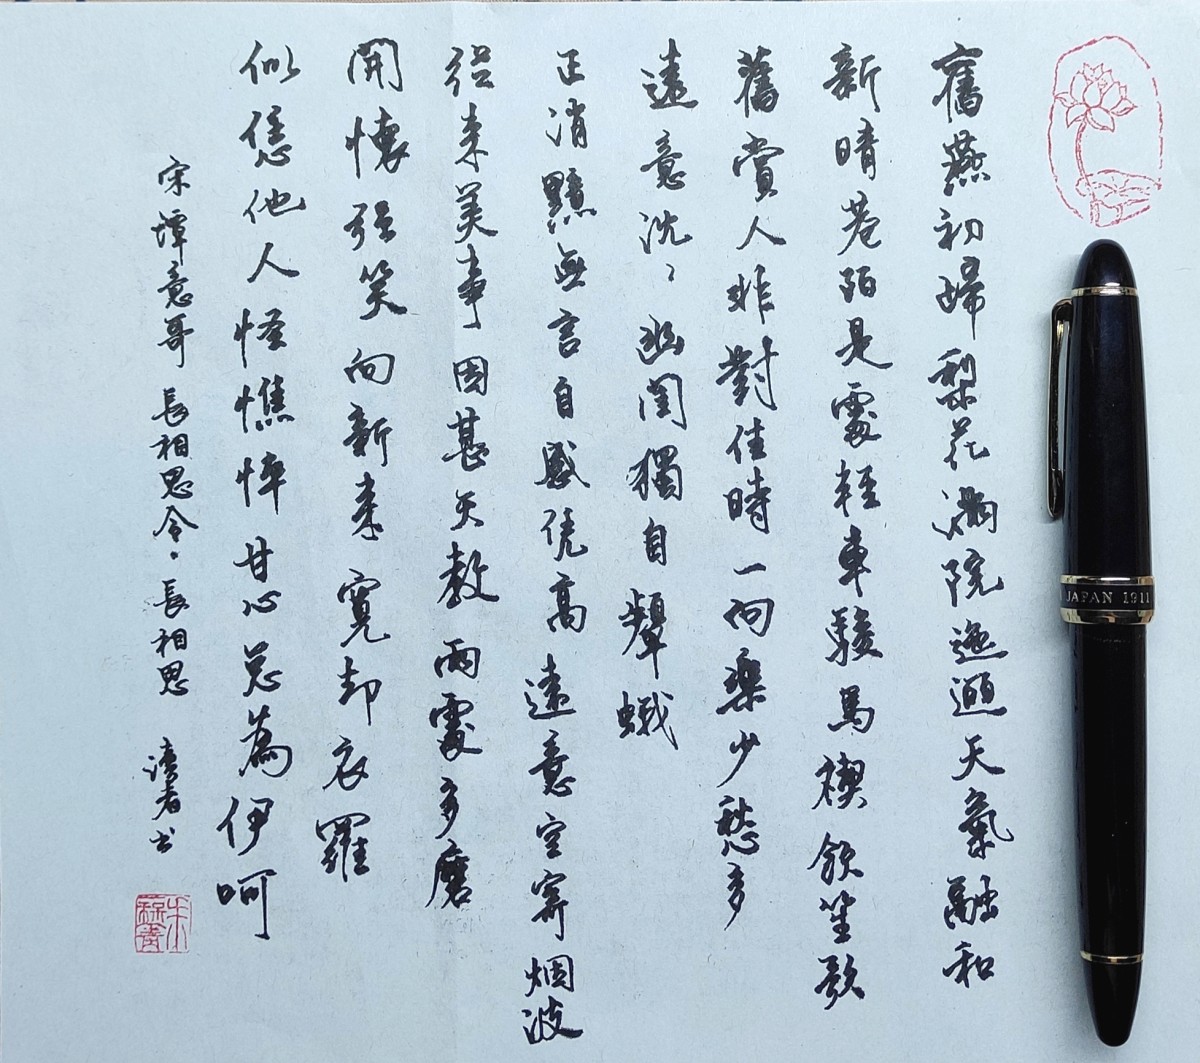 舊燕初歸梨花滿院迤邐天氣融和
新晴巷陌是處輕車駿馬禊飲笙歌
舊賞人非對佳時一向樂少愁多
遠意沈〻幽閨獨自顰蛾
正消黯無言自感凭高遠意空寄烟波
從来美事因甚天教兩處多磨
開懷强笑向新来寬却衣羅
似恁他人怪憔悴甘心总為伊呵
宋 譚意哥 長相思令·長相思 讀者书
JAPAN 1911